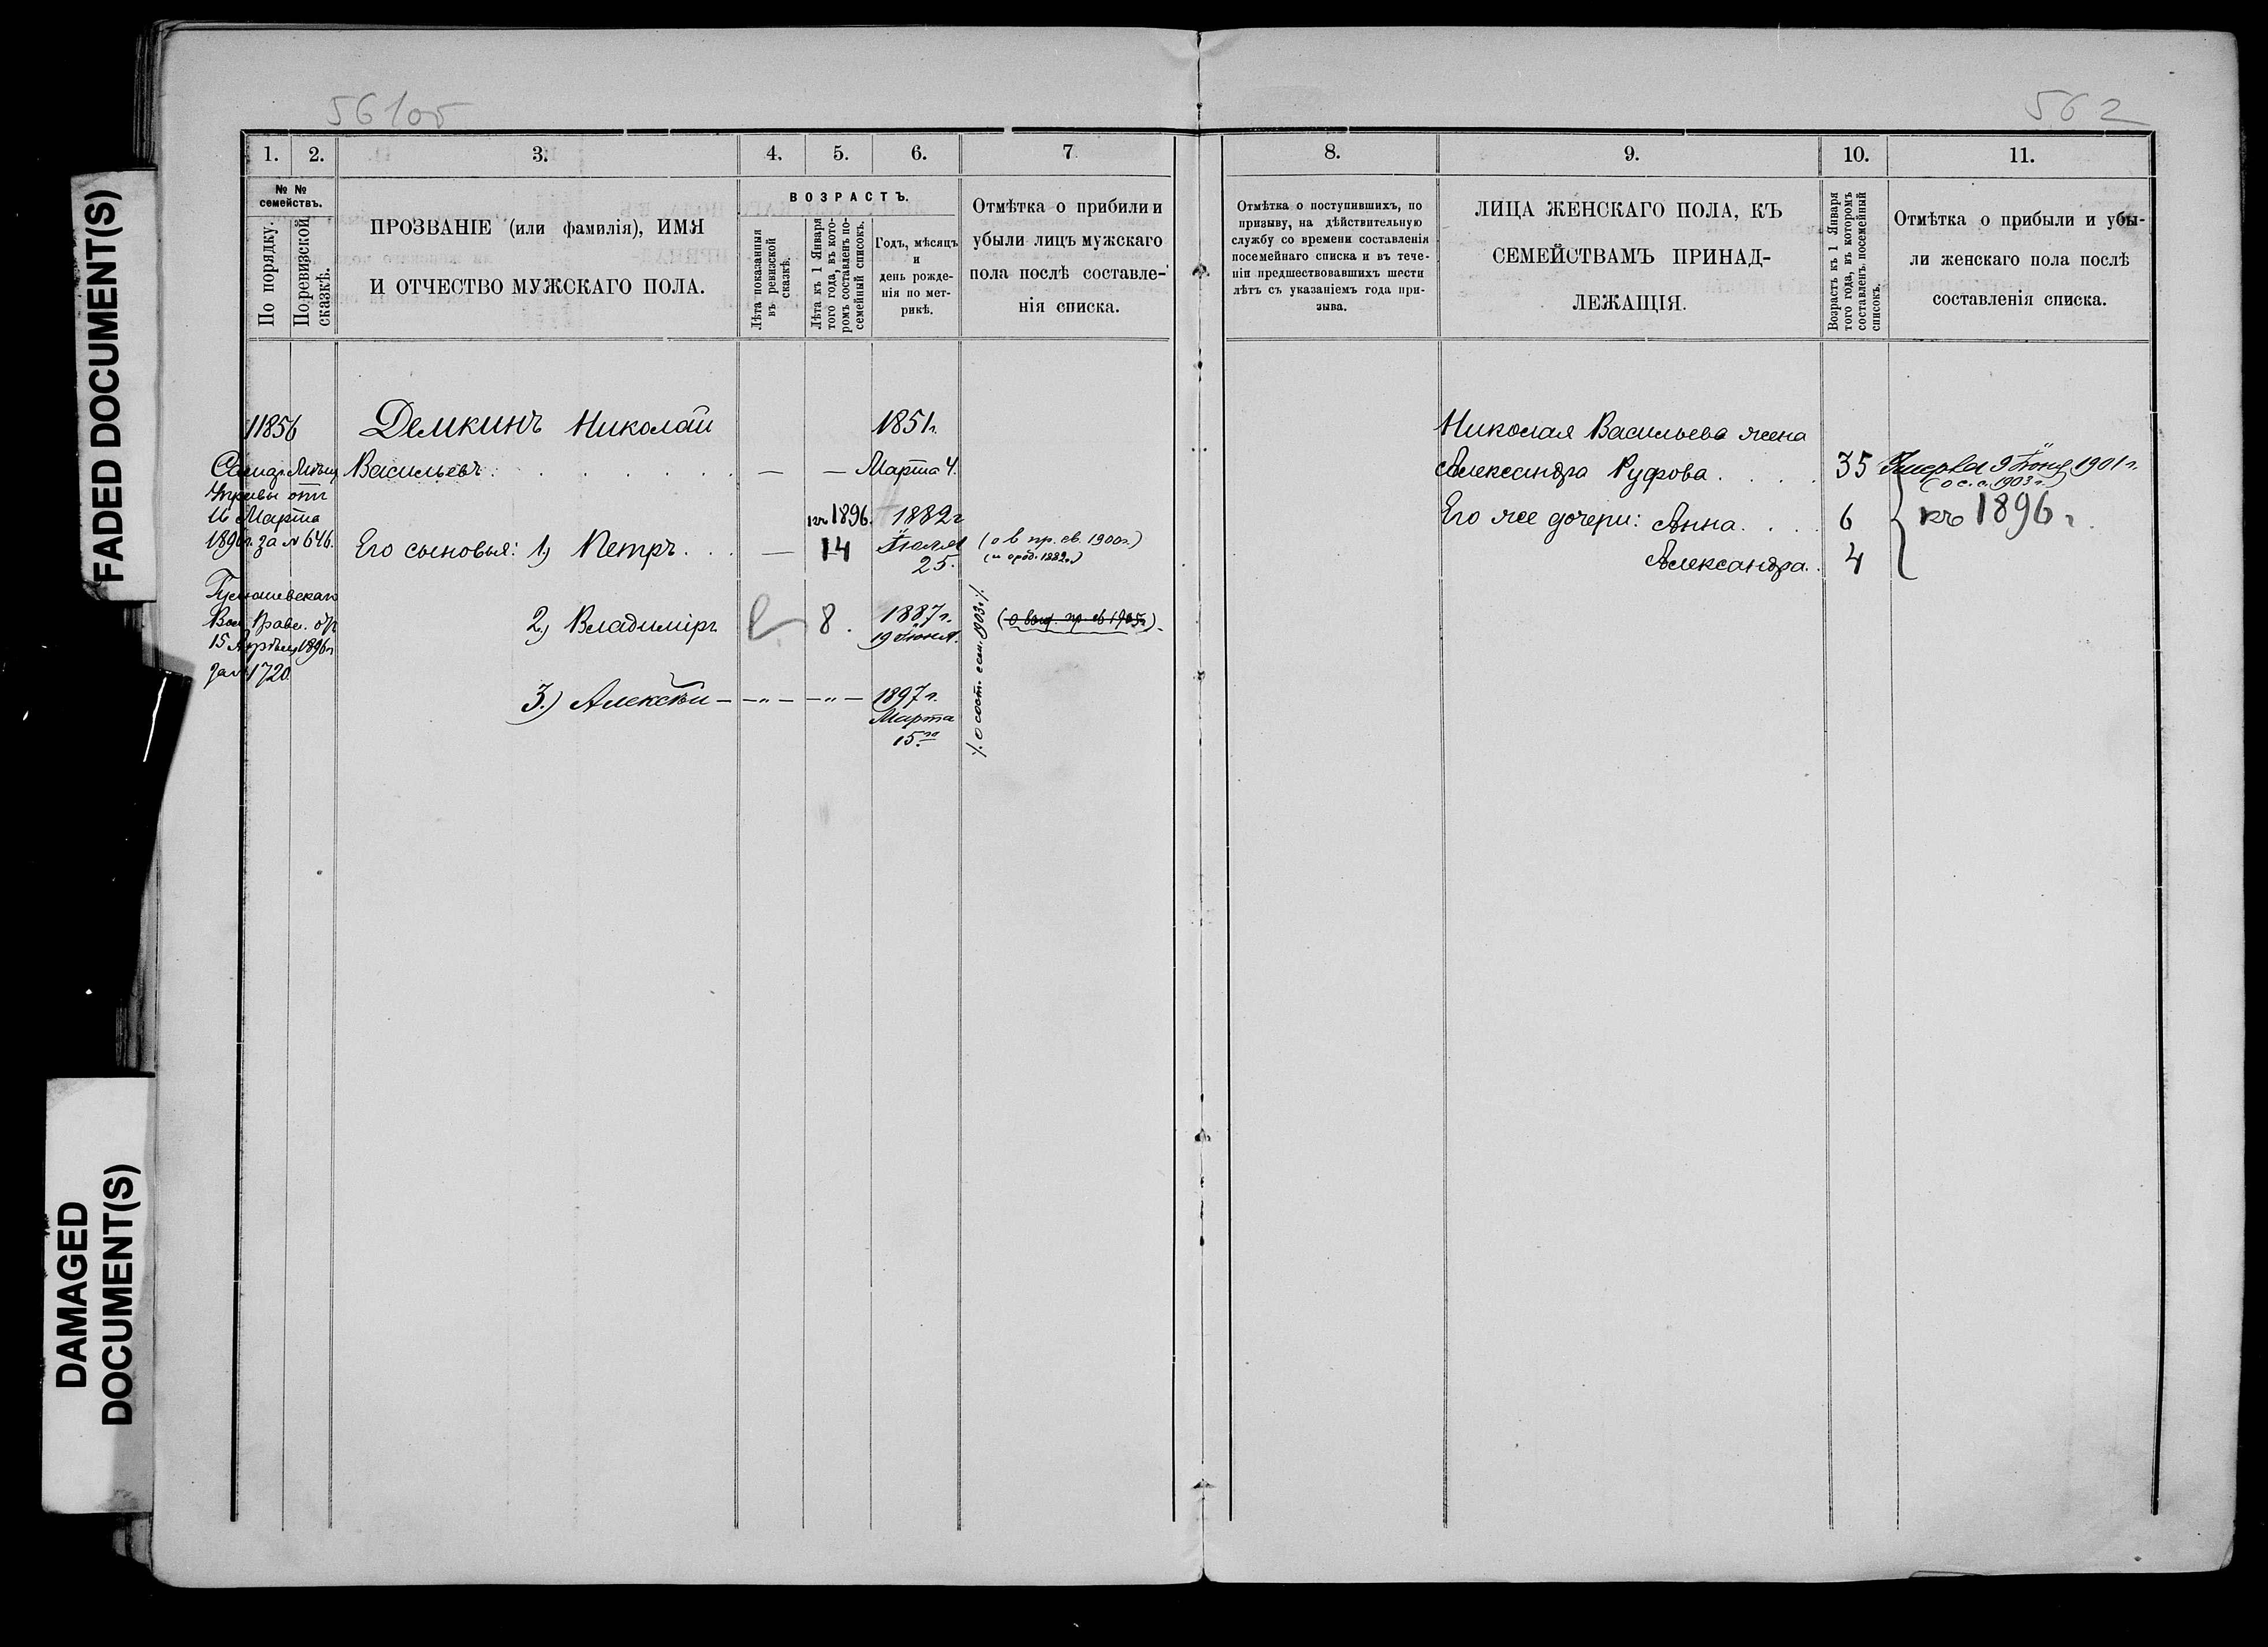 FADED DOCUMENT(S)
DAMAGED
DOCUMENT(S)
561об
1. 2. 3. 4. 5. 6. 7
№ №
семействъ.
По порядку.
По ревизской
сказкѣ.
ПРОЗВАНІЕ (или фамилія), ИМЯ
И ОТЧЕСТВО МУЖСКАГО ПОЛА.
ВОЗРАСТЪ.
Лѣта показанныя
въ ревизской
сказкѣ.
Лѣта къ 1 Января
того года, въ кото-
ромъ составленъ по-
семейный списокъ.
Годъ, мѣсяцъ
и
день рожде-
нія по мет-
рикѣ.
Отмѣтка о прибили и
убыли лицъ мужскаго
пола послѣ составле-
нія списка.
11856
Демкинъ Николай 1851г.
Васильевъ — — Марта 4.
Управы отъ
11 Марта
1896г. за № 646.
къ 1896. 1882г
Его сыновья: 1, Петръ — 14 Іюля 25. (о в пр. св. 1900г.)
Вол. Правл. отъ
15 Апрѣля 1896г
за № 1720.
2, Владиміръ 8. 1887г. 19 Іюня.
3.) Алексѣй — „ — — „ — 1897г.
Марта
15го
562
8. 9. 10. 11.
Отмѣтка о поступившихъ, по
призыву, на дѣйствительную
службу со времени составленія
посемейнаго списка и въ тече-
ніи предшествовавшихъ шести
лѣтъ съ указаніемъ года при-
зыва.
ЛИЦА ЖЕНСКАГО ПОЛА, КЪ
СЕМЕЙСТВАМЪ ПРИНАД-
ЛЕЖАЩІЯ.
Возрастъ къ 1 Января
того года, въ которомъ
составленъ посемейный
списокъ.
Отмѣтка о прибыли и убы-
ли женскаго пола послѣ
составленія списка.
Николая Васильева жена
Александра Руфова 35 Умерла 9 Іюня 1901г.
(о с. с. 1903г.)
Его же дочери: Анна 6 къ 1896г.
Александра. 4